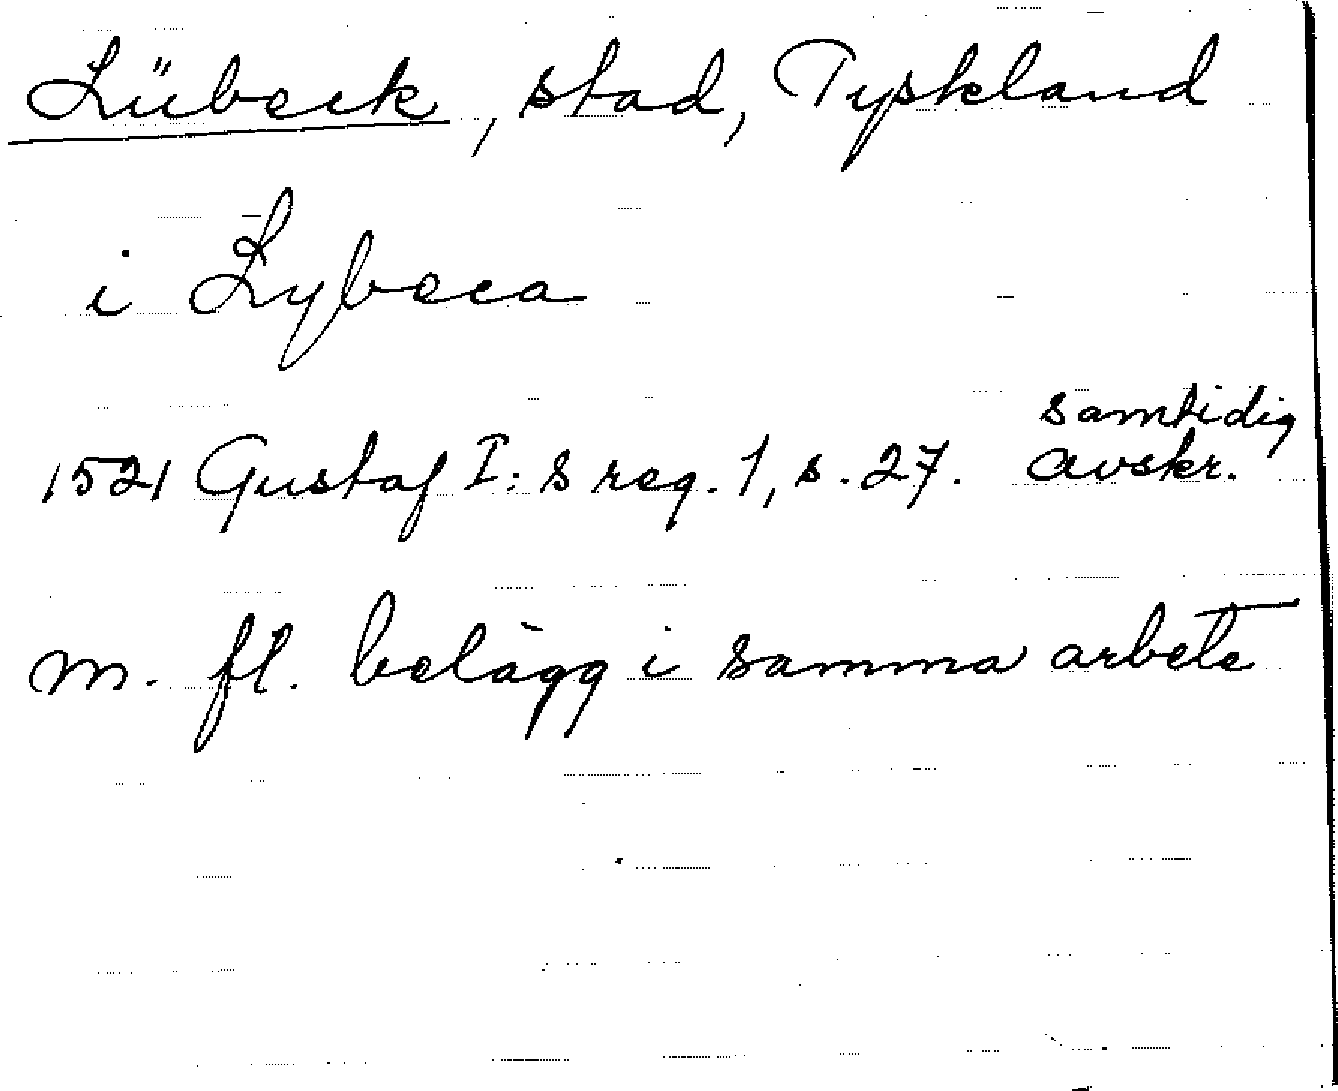 Lübeck, stad, Tyskland
i Lybeca
samtidig
1521 Gustaf I:s reg. 1, s. 27. avskr.
m. fl. belägg i samma arbete